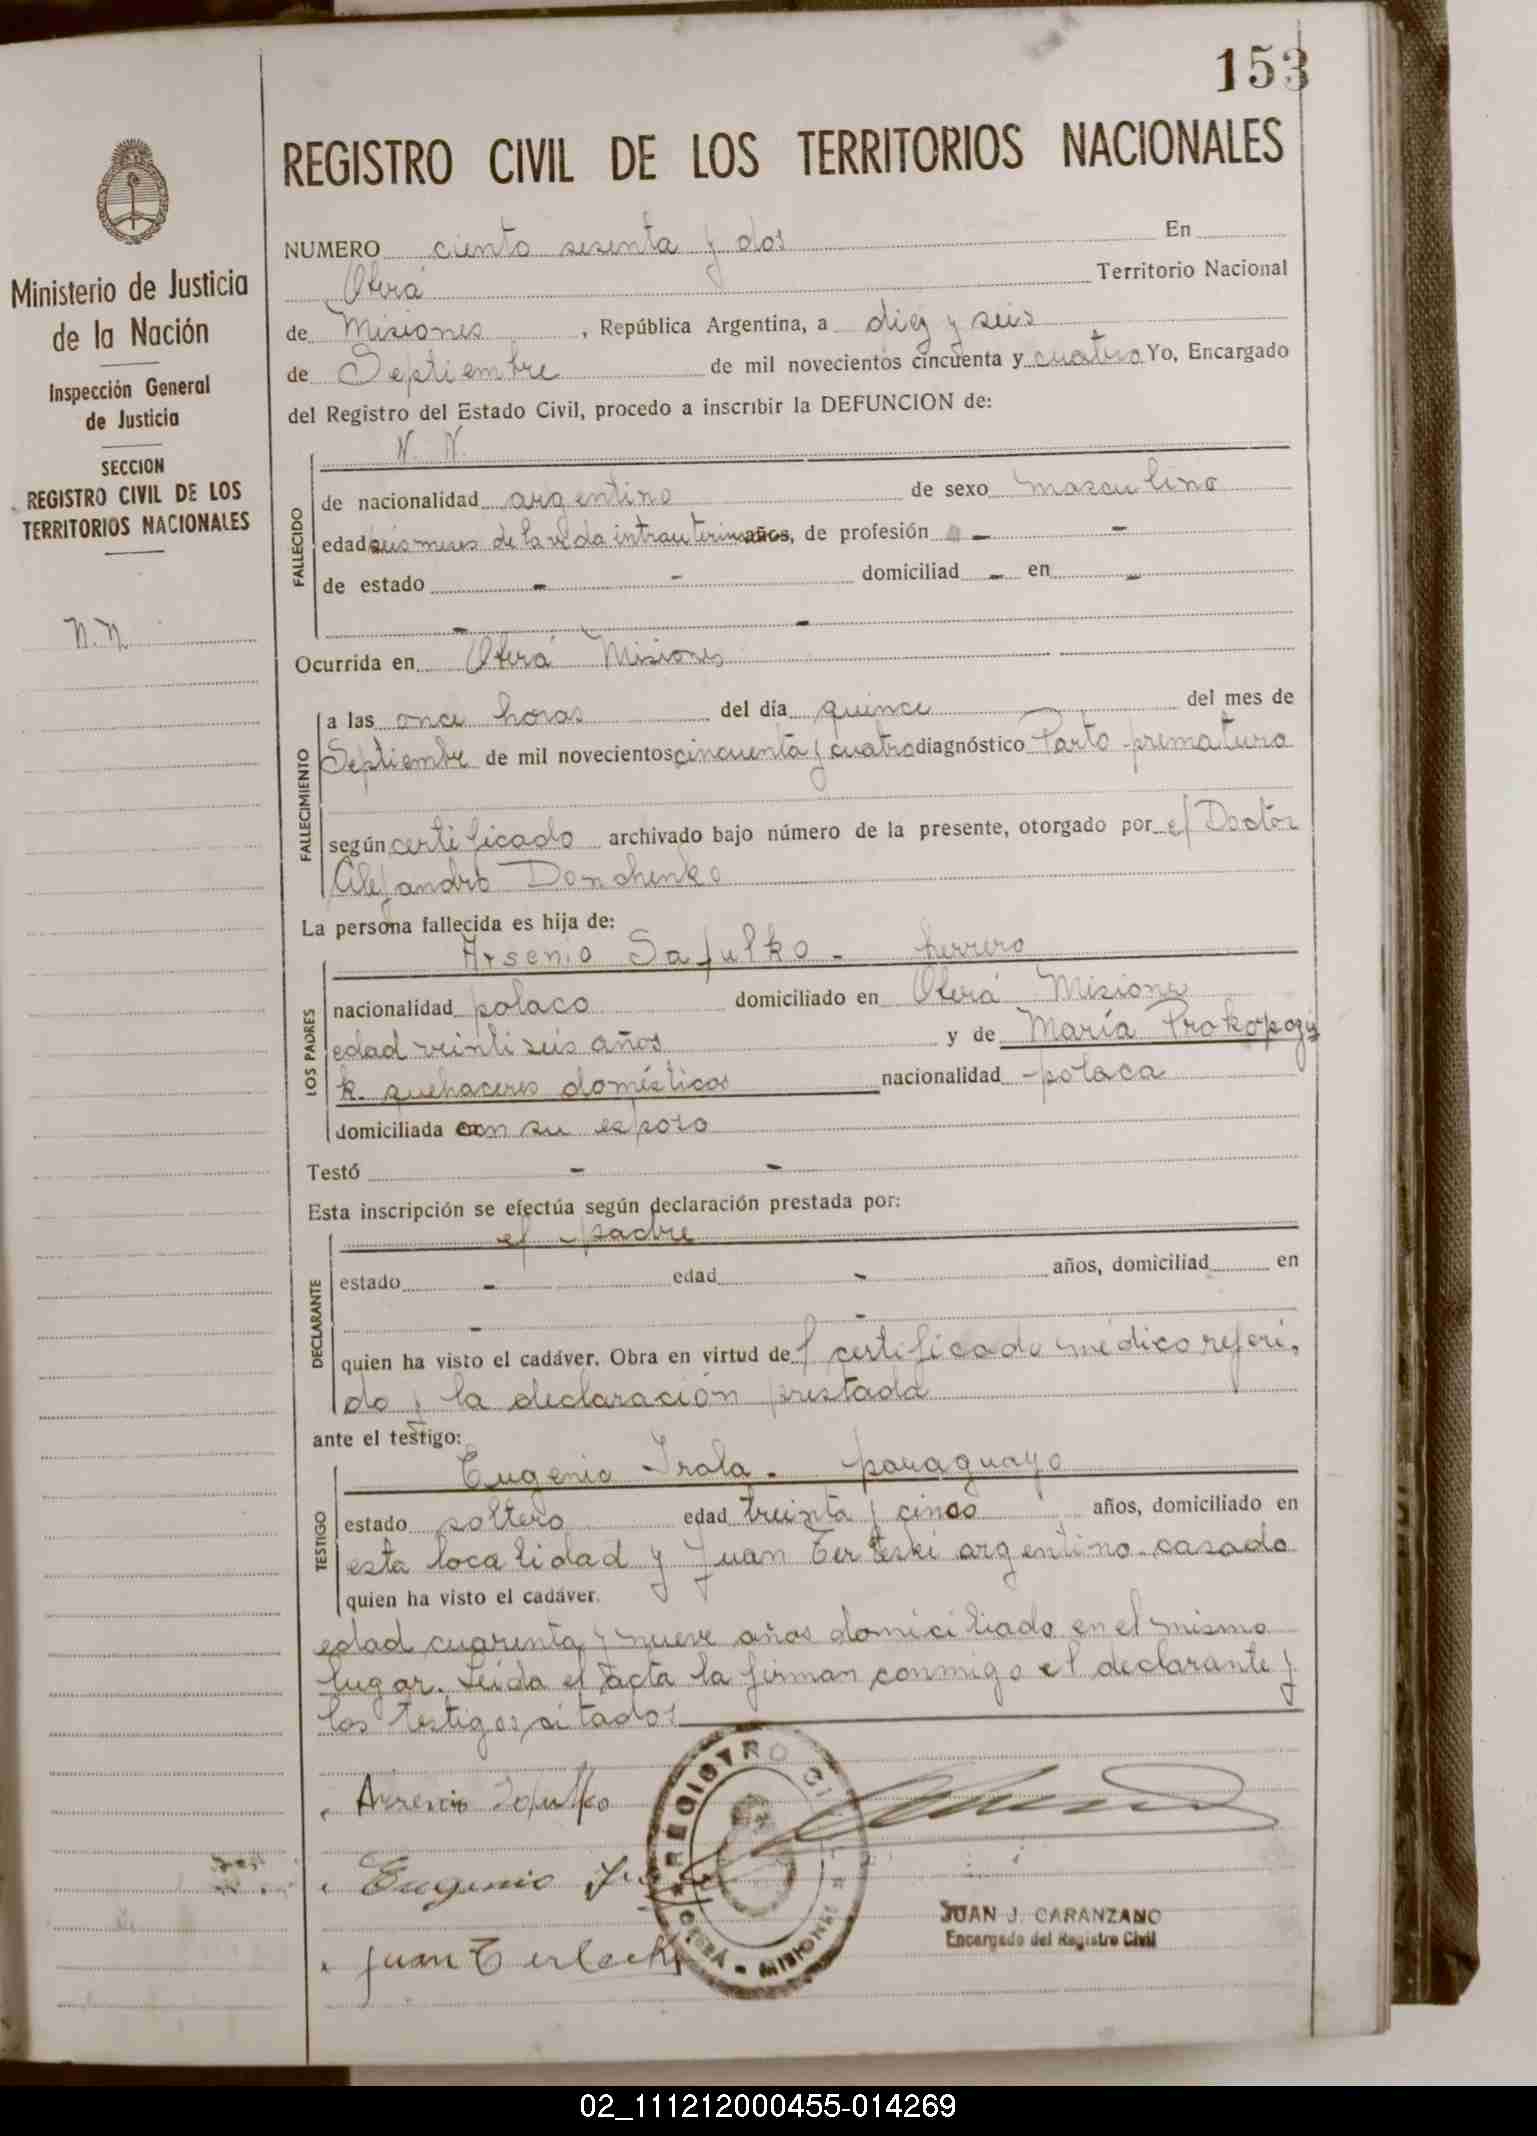 153
REGISTRO CIVIL DE LOS TERRITORIOS NACIONALES
Ministerio de Justicia
de la Nación
Inspección General
de Justicia
SECCION
REGISTRO CIVIL DE LOS
TERRITORIOS NACIONALES
N.N
NUMERO ciento sesenta y dos En
Oberá Territorio Nacional
de Misiones, República Argentina, a diez y seis
de Septiembre de mil novecientos cincuenta y cuatro Yo, Encargado
del Registro del Estado Civil, procedo a inscribir la DEFUNCION de:
N. N.
FALLECIDO
de nacionalidad argentino de sexo masculino
edad seis meses de la vida intrauterina años, de profesión - -
de estado - - domiciliad - en -
- -
Ocurrida en Oberá Misiones
FALLECIMIENTO
a las once horas del día quince del mes de
Septiembre de mil novecientos cincuenta y cuatro diagnóstico Parto prematuro
según certificado archivado bajo número de la presente, otorgado por el Doctor
Alejandro Donchenko
La persona fallecida es hija de:
LOS PADRES
Arsenio Safulko - herrero
nacionalidad polaco domiciliado en Oberá Misiones
edad veintiseis años y de María Prokopczy
k. quehaceres domésticos nacionalidad polaca
domiciliada con su esposo
Testó - -
Esta inscripción se efectúa según declaración prestada por:
DECLARANTE
el padre
estado - edad - años, domiciliad en
- -
quien ha visto el cadáver. Obra en virtud del certificado médico referi-
do y la declaración prestada
ante el testigo:
TESTIGO
Eugenio Irala - paraguayo
estado soltero edad treinta y cinco años, domiciliado en
esta localidad y Juan Terleski argentino casado
quien ha visto el cadáver.
edad cuarenta y nueve años domiciliado en el mismo
lugar. Leida el acta la firman conmigo el declarante y
los testigos citados
Arsenio Safulko
Eugenio
Juan Terlecki
REGISTRO CIVIL
OBERÁ - MISIONES
JUAN J. CARANZANO
Encargado del Registro Civil
02_111212000455-014269